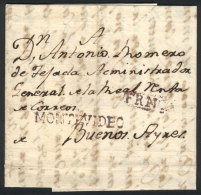 A
Dn. Antonio Romero
de Tejada Administrador
General de la Real Renta
de Correos
FRN
MONTEVIDEO
Buenos Ayres